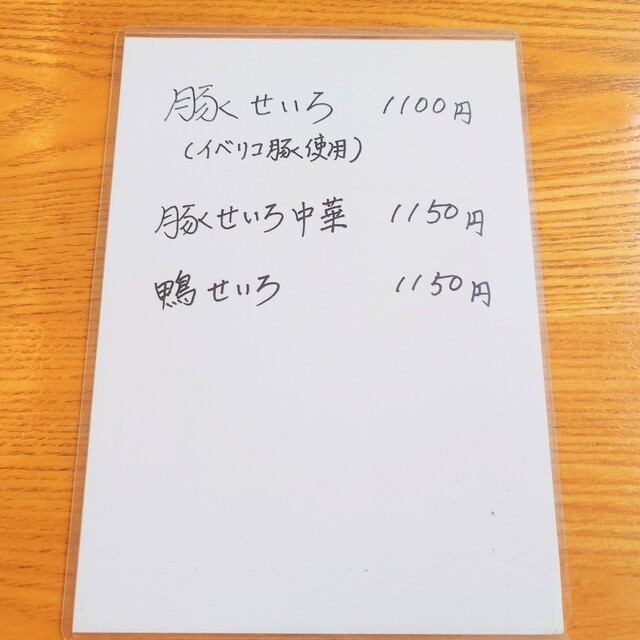 豚せいろ 1100円
(イベリコ豚使用)
豚せいろ中華 1150円
鴨せいろ 1150円